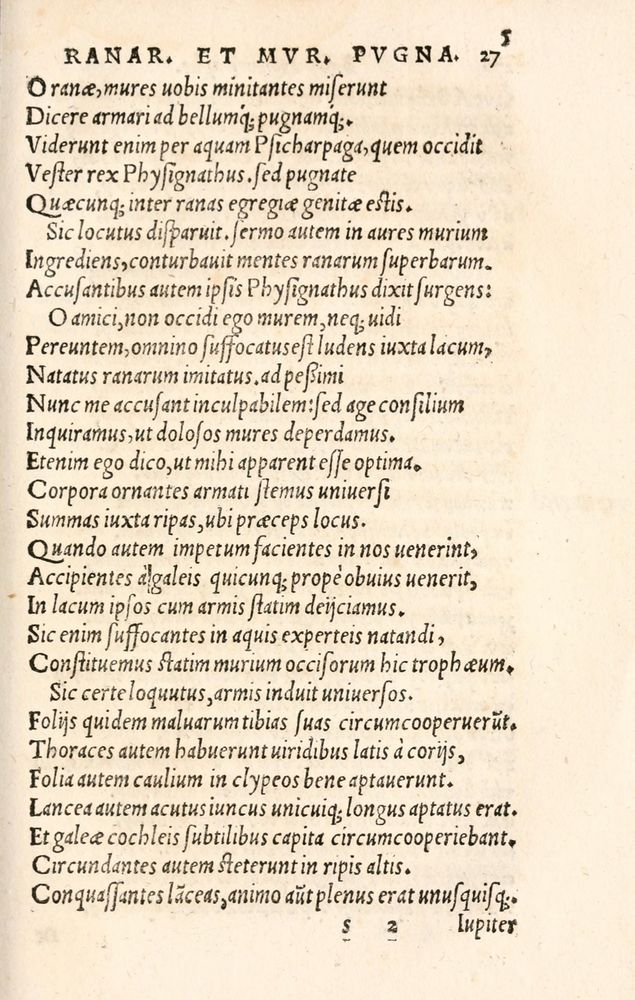 RANAR. ET MVR. PVGNA. 275
O ranæ, mures uobis minitantes miserunt
Dicere armari ad bellumq; pugnamq;.
Viderunt enim per aquam Psicharpaga, quem occidit
Vester rex Physignathus. sed pugnate
Quæcunq; inter ranas egregiæ genitæ estis.
Sic locutus disparuit. sermo autem in aures murium
Ingrediens, conturbauit mentes ranarum superbarum.
Accusantibus autem ipsis Physignathus dixit surgens:
O amici, non occidi ego murem, neq; uidi
Pereuntem, omnino suffocatus est ludens iuxta lacum,
Natatus ranarum imitatus. ad peßimi
Nunc me accusant inculpabilem: sed age consilium
Inquiramus, ut dolosos mures deperdamus.
Etenim ego dico, ut mihi apparent esse optima.
Corpora ornantes armati stemus uniuersi
Summas iuxta ripas, ubi præceps locus.
Quando autem impetum facientes in nos uenerint,
Accipientes à galeis quicunq; propè obuius uenerit,
In lacum ipsos cum armis statim deijciamus.
Sic enim suffocantes in aquis experteis natandi,
Constituemus statim murium occisorum hic trophæum.
Sic certe loquutus, armis induit uniuersos.
Folijs quidem maluarum tibias suas circumcooperuerũt.
Thoraces autem habuerunt uiridibus latis à corijs,
Folia autem caulium in clypeos bene aptauerunt.
Lancea autem acutus iuncus unicuiq; longus aptatus erat.
Et galeæ cochleis subtilibus capita circumcooperiebant.
Circundantes autem steterunt in ripis altis.
Conquassantes lãceas, animo aũt plenus erat unusquisq;.
s 2 Iupiter